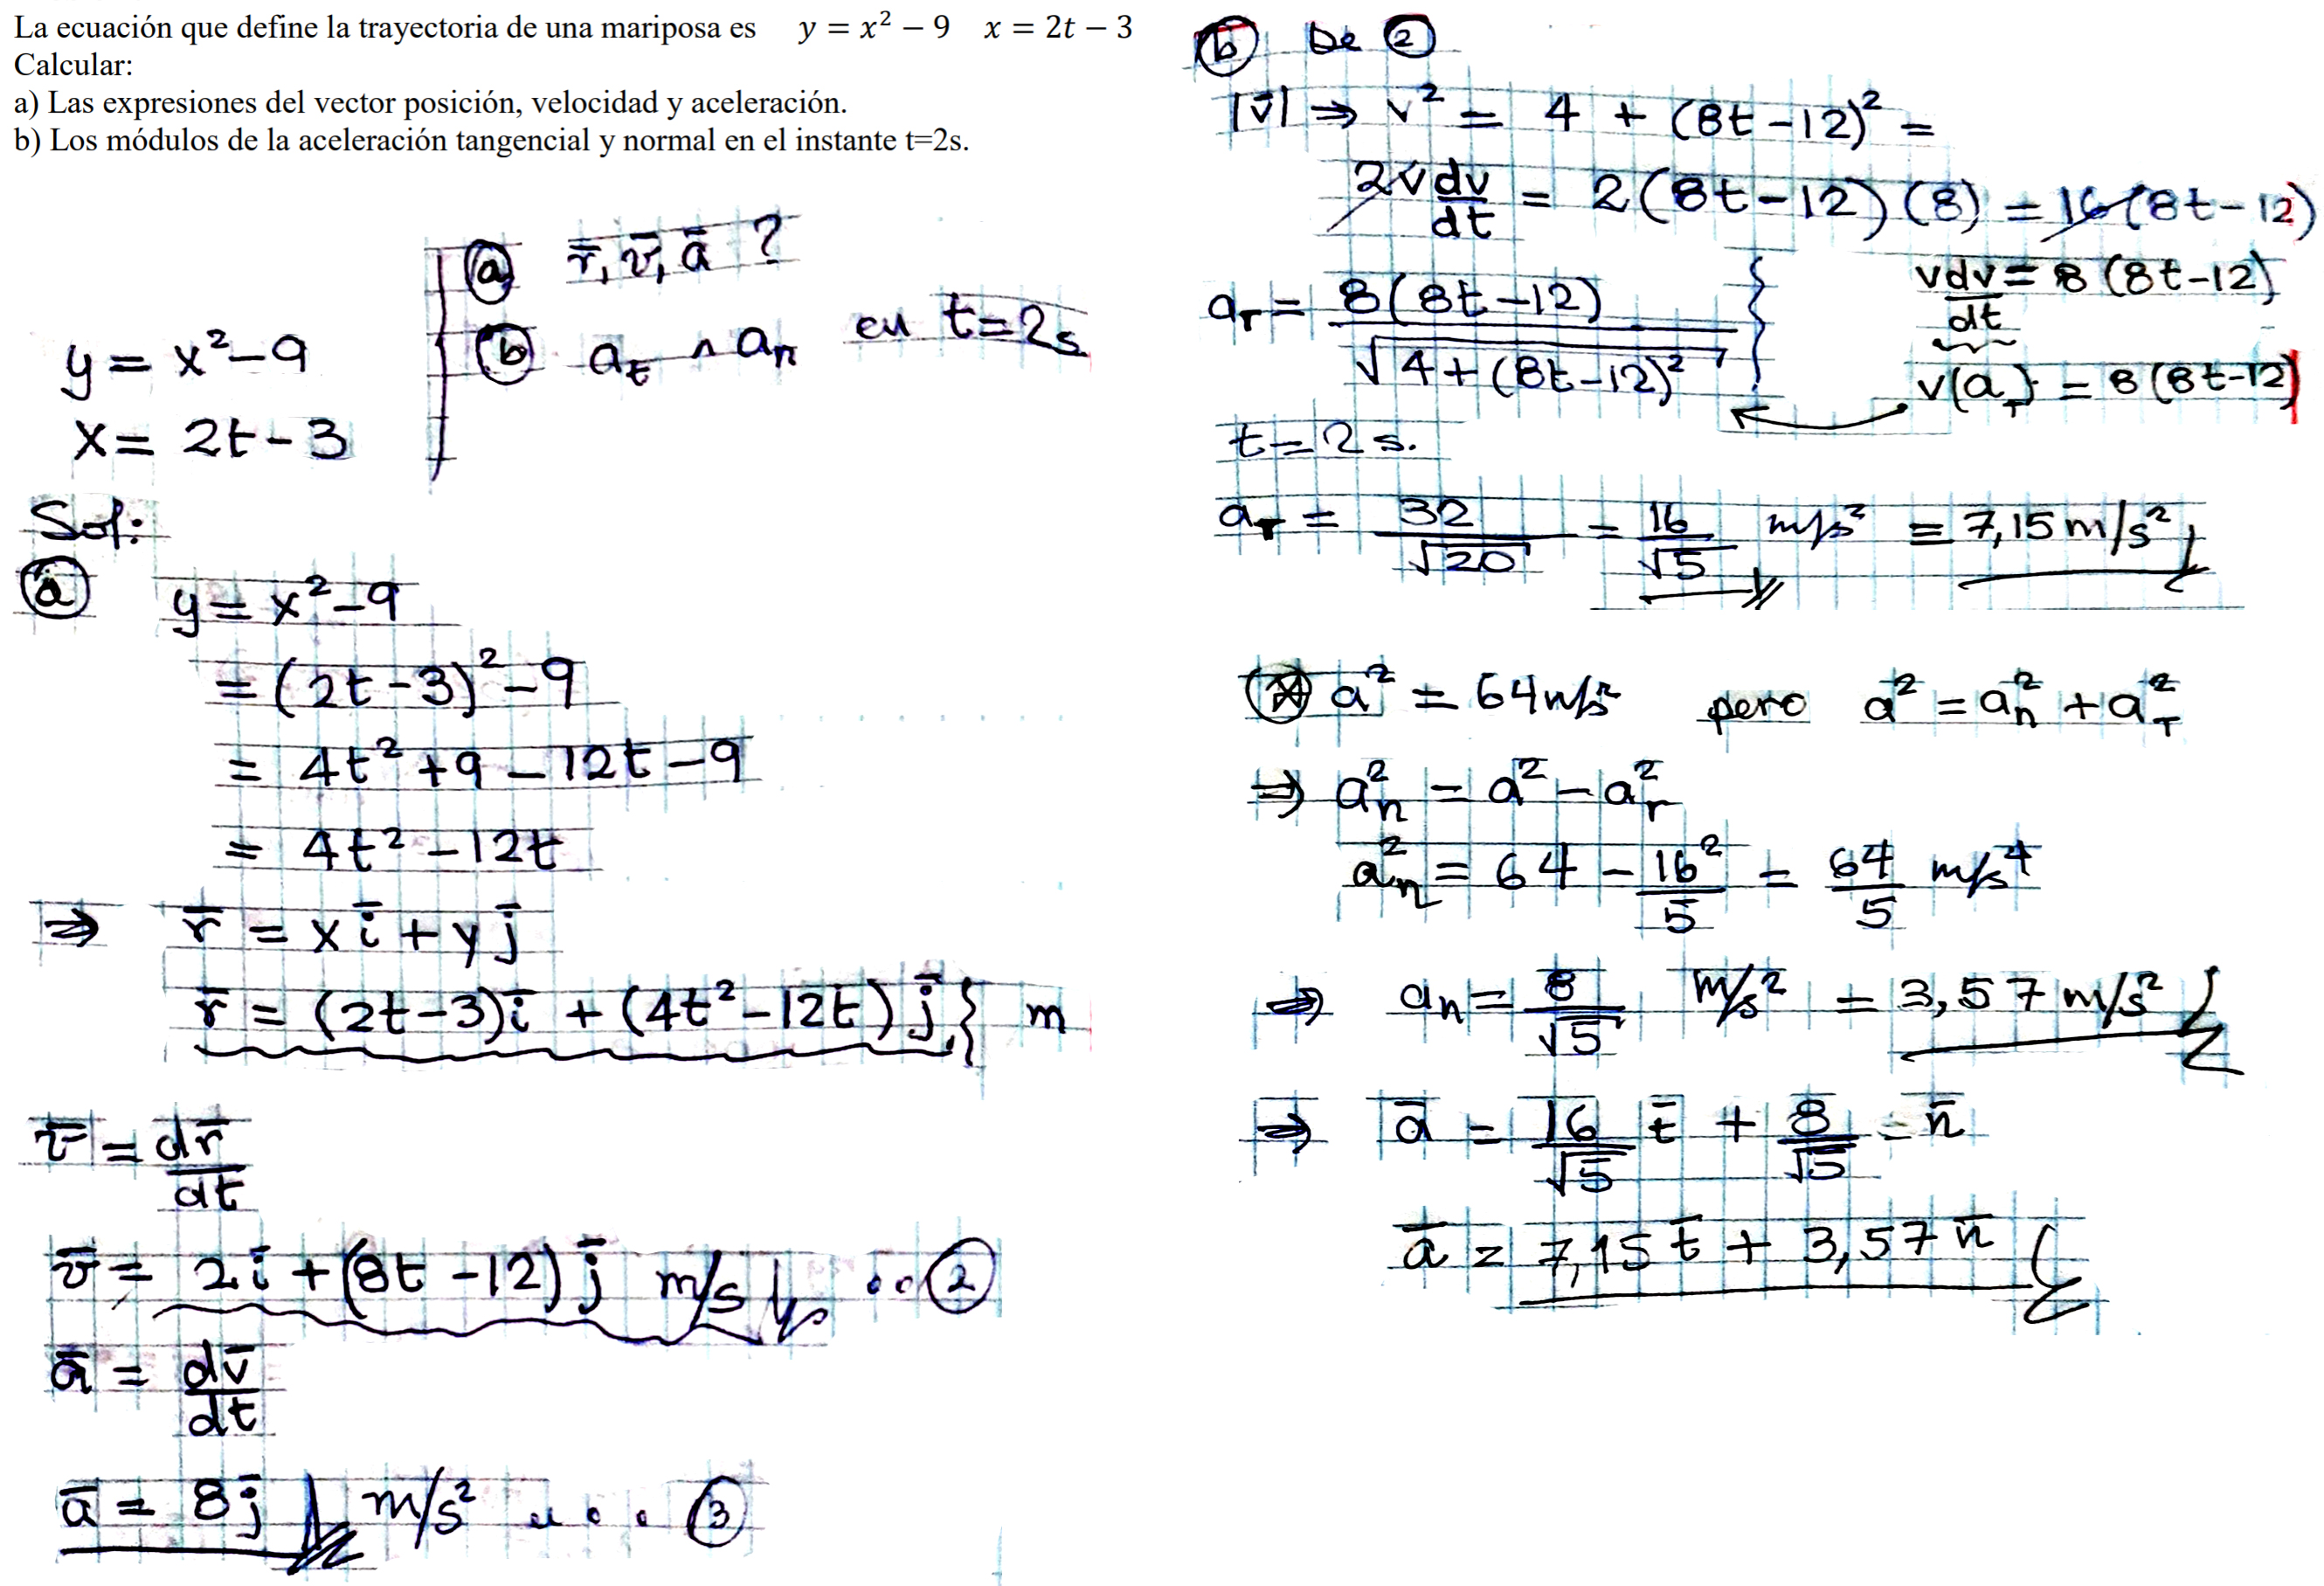 La ecuación que define la trayectoria de una mariposa es y = x² − 9 x = 2t − 3
Calcular:
a) Las expresiones del vector posición, velocidad y aceleración.
b) Los módulos de la aceleración tangencial y normal en el instante t=2s.
y = x² − 9
x = 2t − 3
(a) r̄, v̄, ā ?
(b) a_t ∧ a_n en t=2s
Sol:
(a) y = x² − 9
= (2t − 3)² − 9
= 4t² + 9 − 12t − 9
= 4t² − 12t
⇒ r̄ = x ī + y j̄
r̄ = (2t−3) ī + (4t² − 12t) j̄ } m
v̄ = dr̄/dt
v̄ = 2ī + (8t − 12) j̄ m/s ..(2)
ā = dv̄/dt
ā = 8j̄ m/s² ...(3)
(b) De (2)
|v̄| ⇒ v² = 4 + (8t − 12)² =
2v dv/dt = 2(8t − 12)(8) = 16(8t − 12)
v dv/dt = 8(8t−12)
a_T = 8(8t − 12)/√(4 + (8t−12)²) }
v(a_T) = 8(8t−12)
t = 2 s.
a_T = 32/√20 = 16/√5 m/s² = 7,15 m/s²
(*) a² = 64 m/s² pero a² = a_n² + a_T²
⇒ a_n² = a² − a_T²
a_n² = 64 − 16²/5 = 64/5 m/s⁴
⇒ a_n = 8/√5 m/s² = 3,57 m/s²
⇒ ā = 16/√5 t̄ + 8/√5 n̄
ā = 7,15 t̄ + 3,57 n̄